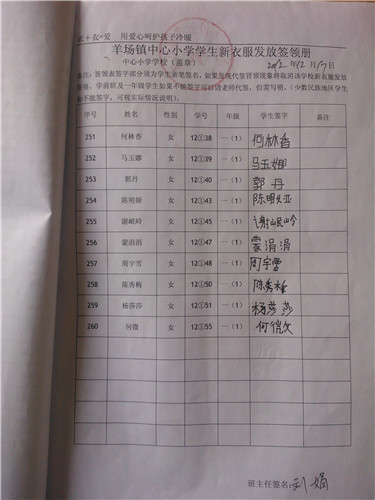 衣+衣=爱 用爱心呵护孩子冷暖
羊场镇中心小学学生新衣服发放签领册
中心小学学校（盖章） 2012年12月17日
备注：签领表签字部分须为学生亲笔签名，如果发现代签冒领现象将取消该学校新衣服发放
资格。学前班及一年级学生如果不能签字可以请老师代签，但需写明。（少数民族地区学生
如不能签字，可视实际情况说明）。
序号 姓名 性别 学号 年级 学生签字 备注
251 何林香 女 12①38 一（1） 何林香
252 马玉娜 女 12①39 一（1） 马玉娜
253 郭丹 女 12①40 一（1） 郭丹
254 陈明娅 女 12①43 一（1） 陈明娅
255 谢岷岭 女 12①45 一（1） 谢岷岭
256 蒙涓涓 女 12①47 一（1） 蒙涓涓
257 周宇雪 女 12①48 一（1） 周宇雪
258 陈秀梅 女 12①50 一（1） 陈秀梅
259 杨莎莎 女 12①51 一（1） 杨莎莎
260 何微 女 12①55 一（1）
班主任签名：刘娟